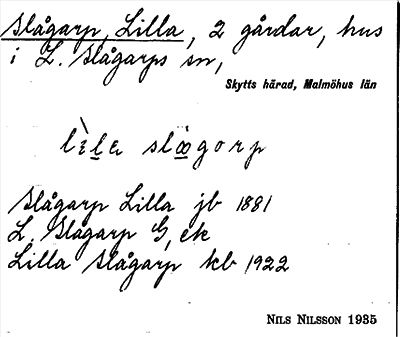 Slågarp, Lilla, 2 gårdar, hus
i L. Slågarps sn,
Skytts härad, Malmöhus län
lìlɛ slågorp
Slågarp Lilla jb 1881
L. Slågarp G, ek
Lilla Slågarp kb 1922
NILS NILSSON 1935